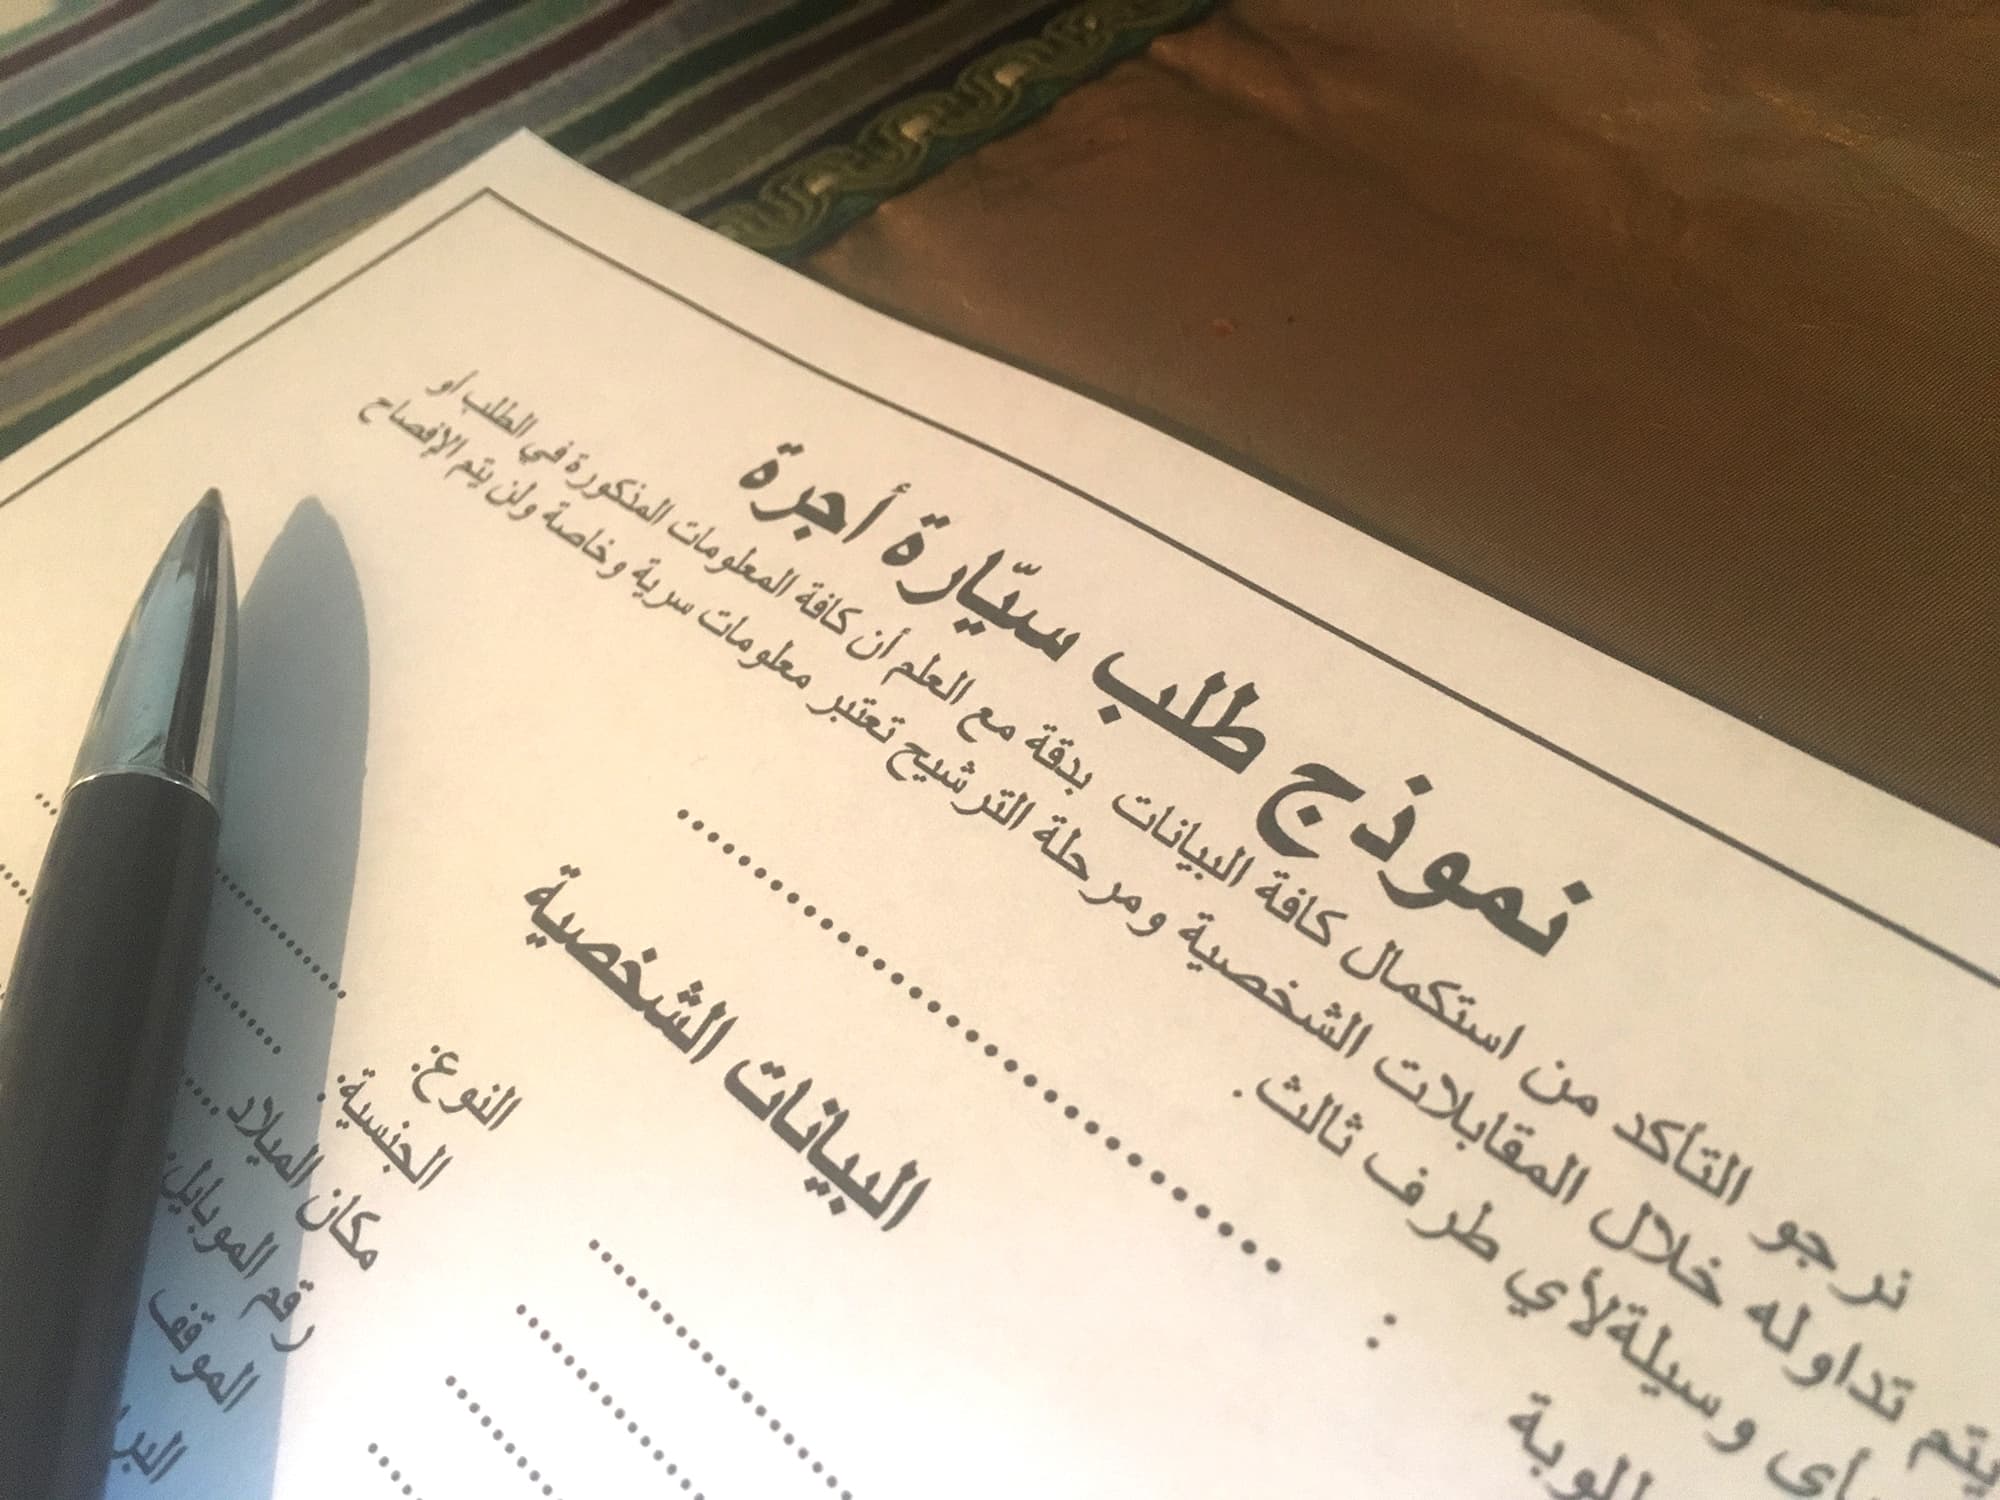 نموذج طلب سيّارة أجرة
نرجو التأكد من استكمال كافة البيانات بدقة مع العلم أن كافة المعلومات المذكورة في الطلب او
يتم تداوله خلال المقابلات الشخصية ومرحلة الترشيح تعتبر معلومات سرية وخاصة ولن يتم الإفصاح
بأي وسيلة لأي طرف ثالث.
: ........................................
البيانات الشخصية
النوع:
الجنسية:
مكان الميلاد
رقم الموبايل:
الموقف